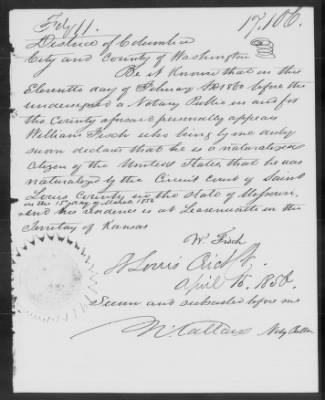 Feby 11. 17.106.
District of Columbia
City and County of Washington
Be it Know that on this
Eleventh day of February AD 1856 before the
undersigned a Notary Public in and for
the County aforesaid personally appears
William Fisch who being by me duly
sworn declare that he is a naturalized
Citizen of the United States, that he was
naturalized by the Circuit Court of Saint
Louis County in the State of Missouri,
on the 15 day of March 1852
and his residence is at Leavenworth in the
Territory of Kansas
W. Fisch
St Louis Circt Ct.
April 15. 1850.
Sworn and subscribed before me
N. Callan Noty Public